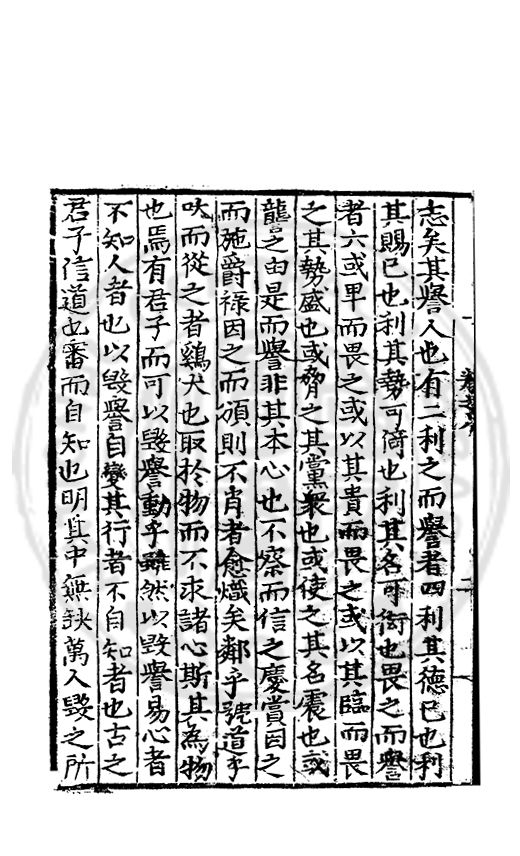 志矣其譽人也有二利之而譽者四利其德已也利
其賜已也利其勢可倚也利其名可衒也畏之而譽
者六或畢而畏之或以其貴而畏之或以其臨而畏
之其勢盛也或脅之其黨衆也或使之其名震也或
讋之由是而譽非其本心也不察而信之慶賞因之
而施爵祿因之而頒則不肖者愈熾矣鄰乎號道乎
吠而從之者雞犬也取於物而不求諸心斯其為物
也焉有君子而可以毀譽動乎雖然以毀譽易心者
不知人者也以毀譽自變其行者不自知者也古之
君子信道也審而自知也明其中無缺萬人毀之所